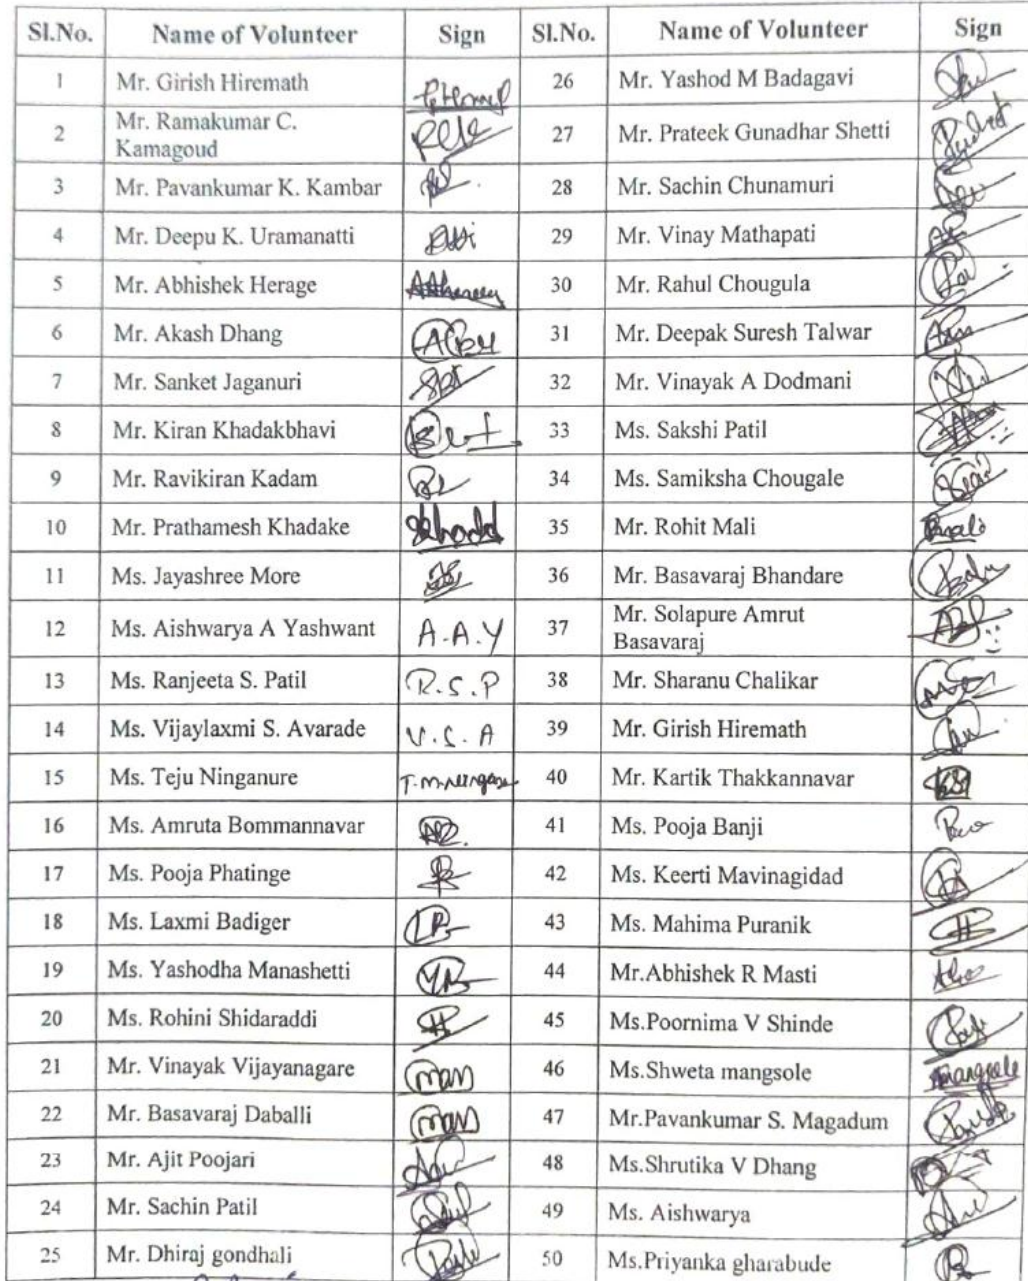 Sl.No. Name of Volunteer Sign Sl.No. Name of Volunteer Sign
1 Mr. Girish Hiremath 26 Mr. Yashod M Badagavi
2 Mr. Ramakumar C.
Kamagoud 27 Mr. Prateek Gunadhar Shetti
3 Mr. Pavankumar K. Kambar 28 Mr. Sachin Chunamuri
4 Mr. Deepu K. Uramanatti 29 Mr. Vinay Mathapati
5 Mr. Abhishek Herage 30 Mr. Rahul Chougula
6 Mr. Akash Dhang 31 Mr. Deepak Suresh Talwar
7 Mr. Sanket Jaganuri 32 Mr. Vinayak A Dodmani
8 Mr. Kiran Khadakbhavi 33 Ms. Sakshi Patil
9 Mr. Ravikiran Kadam 34 Ms. Samiksha Chougale
10 Mr. Prathamesh Khadake 35 Mr. Rohit Mali
11 Ms. Jayashree More 36 Mr. Basavaraj Bhandare
12 Ms. Aishwarya A Yashwant A.A.Y 37 Mr. Solapure Amrut
Basavaraj
13 Ms. Ranjeeta S. Patil R.S.P 38 Mr. Sharanu Chalikar
14 Ms. Vijaylaxmi S. Avarade V.S.A 39 Mr. Girish Hiremath
15 Ms. Teju Ninganure 40 Mr. Kartik Thakkannavar
16 Ms. Amruta Bommannavar 41 Ms. Pooja Banji
17 Ms. Pooja Phatinge 42 Ms. Keerti Mavinagidad
18 Ms. Laxmi Badiger 43 Ms. Mahima Puranik
19 Ms. Yashodha Manashetti 44 Mr.Abhishek R Masti
20 Ms. Rohini Shidaraddi 45 Ms.Poornima V Shinde
21 Mr. Vinayak Vijayanagare 46 Ms.Shweta mangsole
22 Mr. Basavaraj Daballi 47 Mr.Pavankumar S. Magadum
23 Mr. Ajit Poojari 48 Ms.Shrutika V Dhang
24 Mr. Sachin Patil 49 Ms. Aishwarya
25 Mr. Dhiraj gondhali 50 Ms.Priyanka gharabude